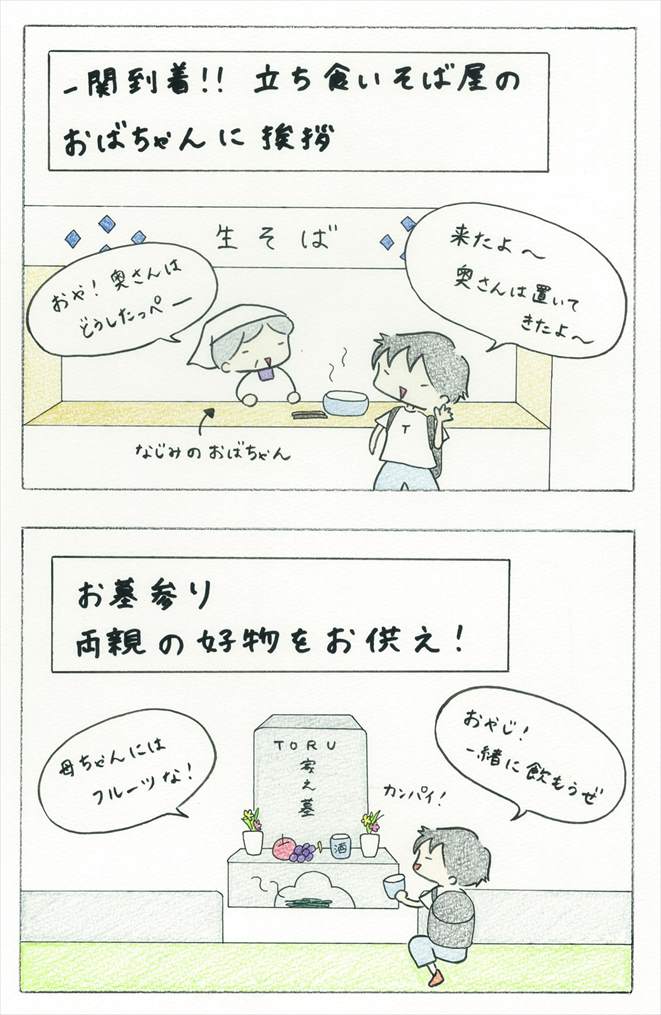 一関到着!! 立ち食いそば屋の
おばちゃんに挨拶
生そば
来たよ〜
奥さんは置いて
きたよ〜
おや!奥さんは
どうしたっぺー
T
なじみのおばちゃん
お墓参り
両親の好物をお供え!
おやじ!
一緒に飲もうぜ
母ちゃんには
フルーツな!
カンパイ!
TORU
家之墓
酒